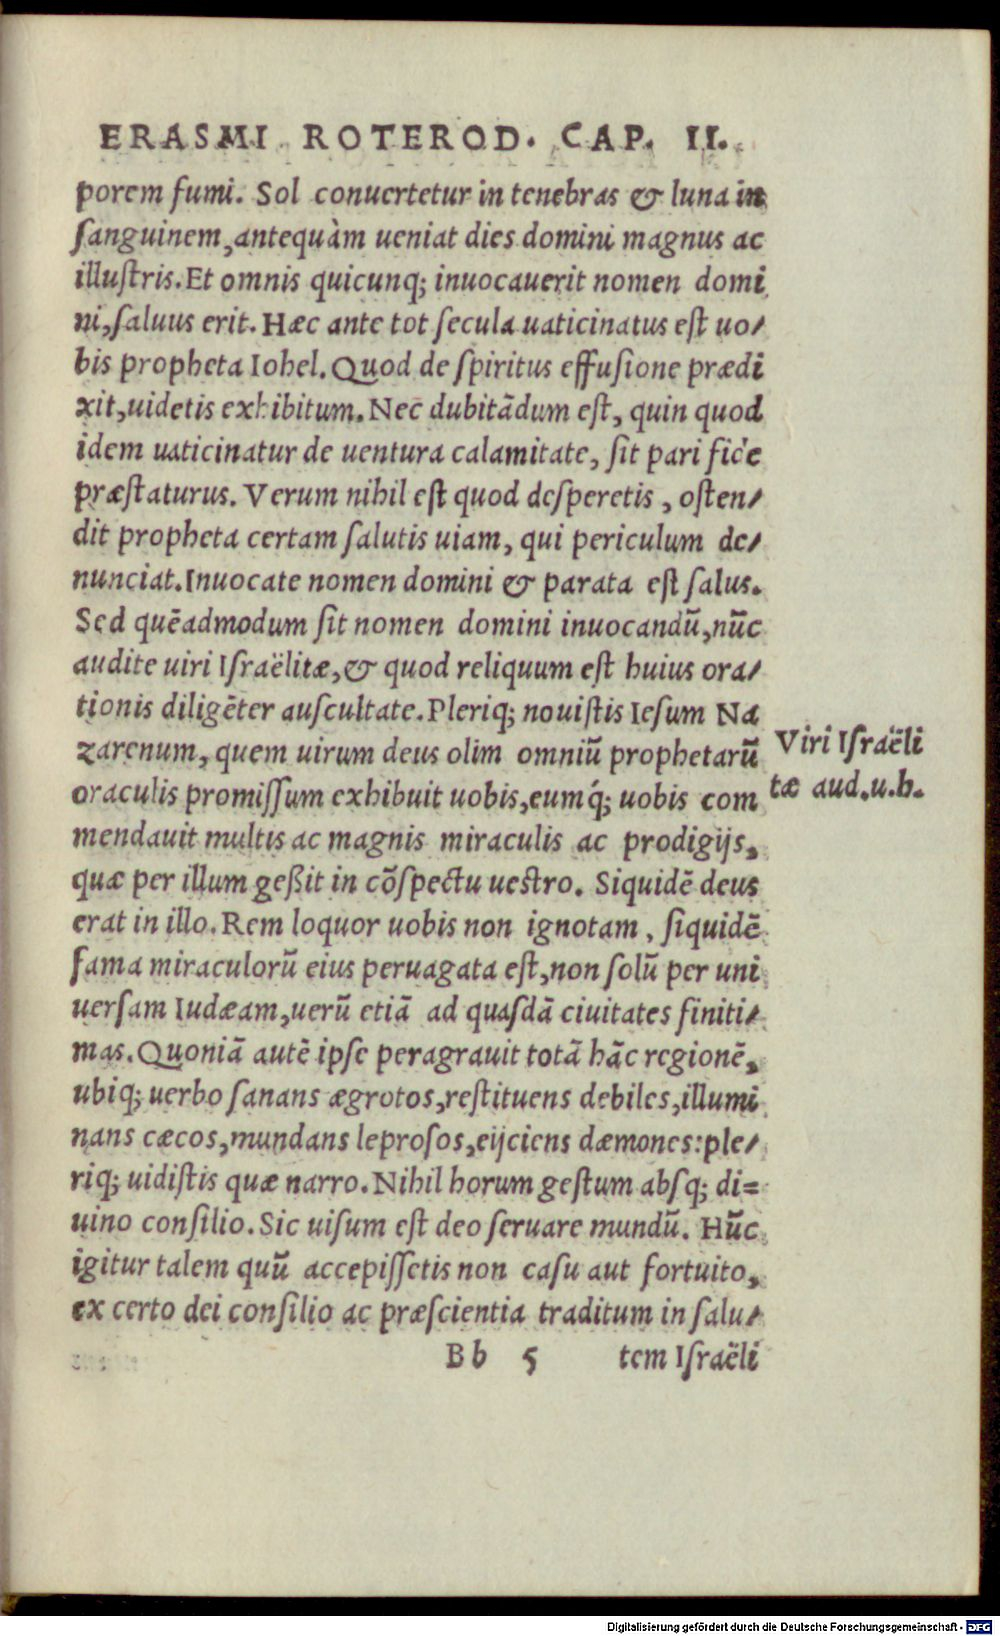 ERASMI ROTEROD. CAP. II.
porem fumi. Sol conuertetur in tenebras & luna in
ſanguinem, antequàm ueniat dies domini magnus ac
illuſtris. Et omnis quicunq; inuocauerit nomen domi
ni, ſaluus erit. Hæc ante tot ſecula uaticinatus eſt uo/
bis propheta Iohel. Quod de ſpiritus effuſione prædi
xit, uidetis exhibitum. Nec dubitādum eſt, quin quod
idem uaticinatur de uentura calamitate, ſit pari fide
præſtaturus. Verum nihil eſt quod deſperetis, oſten/
dit propheta certam ſalutis uiam, qui periculum de/
nunciat. Inuocate nomen domini & parata eſt ſalus.
Sed quēadmodum ſit nomen domini inuocandū, nūc
audite uiri Iſraëlitæ, & quod reliquum eſt huius ora/
tionis diligēter auſcultate. Pleriq; nouiſtis Ieſum Na
zarenum, quem uirum deus olim omniū prophetarū
oraculis promiſſum exhibuit uobis, eumq́; uobis com
mendauit multis ac magnis miraculis ac prodigijs,
quæ per illum geßit in cōſpectu ueſtro. Siquidē deus
erat in illo. Rem loquor uobis non ignotam, ſiquidē
fama miraculorū eius peruagata eſt, non ſolū per uni
uerſam Iudæam, uerū etiā ad quaſdā ciuitates finiti/
mas. Quoniā autē ipſe peragrauit totā hāc regionē,
ubiq; uerbo ſanans ægrotos, reſtituens debiles, illumi
nans cæcos, mundans leproſos, eijciens dæmones: ple/
riq; uidiſtis quæ narro. Nihil horum geſtum abſq; di=
uino conſilio. Sic uiſum eſt deo ſeruare mundū. Hūc
igitur talem quū accepiſſetis non caſu aut fortuito,
ex certo dei conſilio ac præſcientia traditum in ſalu/
Bb 5 tem Iſraëli
Viri Iſraëli
tæ aud.u.h.
Digitalisierung gefördert durch die Deutsche Forschungsgemeinschaft - DFG